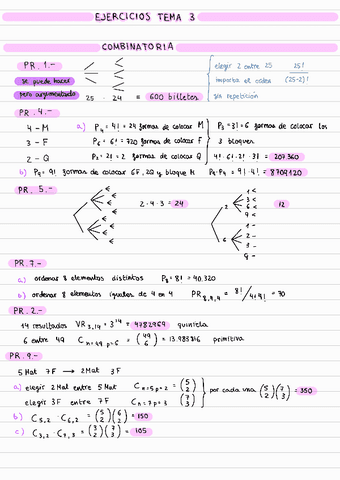 EJERCICIOS TEMA 3
COMBINATORIA
PR. 1.-
se puede hacer
pero argumentado
25 · 24 = 600 billetes
elegir 2 entre 25
importa el orden
sin repetición
25!
(25-2)!
PR. 4.-
4 - M
3 - F
2 - Q
a) P4 = 4! = 24 formas de colocar M
P6 = 6! = 720 formas de colocar F
P2 = 2! = 2 formas de colocar Q
P3 = 3! = 6 formas de colocar los
3 bloques
4! · 6! · 2! · 3! = 207.360
b) P9 = 9! formas de colocar 6F, 2Q y bloque M P9 · P4 = 9! · 4! = 8709120
PR. 5.-
2 · 4 · 3 = 24
2
1
3
6
9
6
1
2
3
9
12
PR. 7.-
a) ordenar 8 elementos distintos P8 = 8! = 40.320
b) ordenar 8 elementos iguales de 4 en 4 PR8,4,4 = 8! / 4!4! = 70
PR. 2.-
14 resultados VR3,14 = 3^14 = 4782969 quiniela
6 entre 49 Cn=49, p=6 = (49 6) = 13.983816 primitiva
PR. 9.-
5 Mat 7F → 2Mat 3F
a) elegir 2 Mat entre 5 Mat Cn=5 p=2 = (5 2)
elegir 3F entre 7F Cn=7 p=3 (7 3)
por cada una (5 2)(7 3) = 350
b) C5,2 · C6,2 = (5 2)(6 2) = 150
c) C3,2 · C7,3 = (3 2)(7 3) = 105